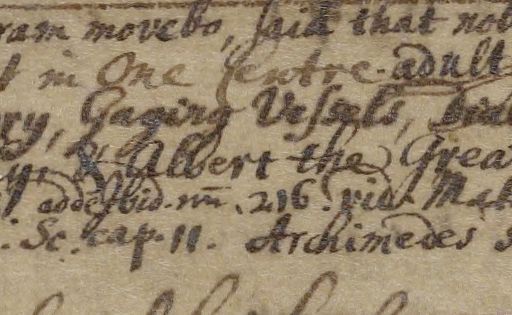 ram movebo, said that nob
t in One Centre. adult
ry, Gaging Vessels,
y, & Albert the Grea
adde Ibid. nu. 216. vid. Mak
. Sc. cap. 11. Archimedes s